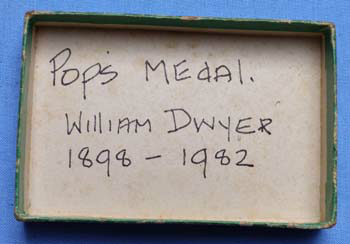 Pop's Medal.
William Dwyer
1898 - 1982